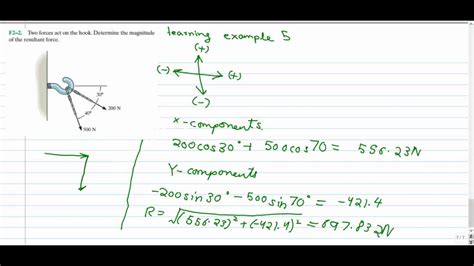 F2–2. Two forces act on the hook. Determine the magnitude
of the resultant force.
30°
200 N
40°
500 N
learning example 5
(+)
(-) (+)
(-)
x-components
200cos30° + 500cos70 = 556.23N
Y-components
-200sin30° -500sin70° = -421.4
R = √(556.23)² + (-421.4)² = 697.832N